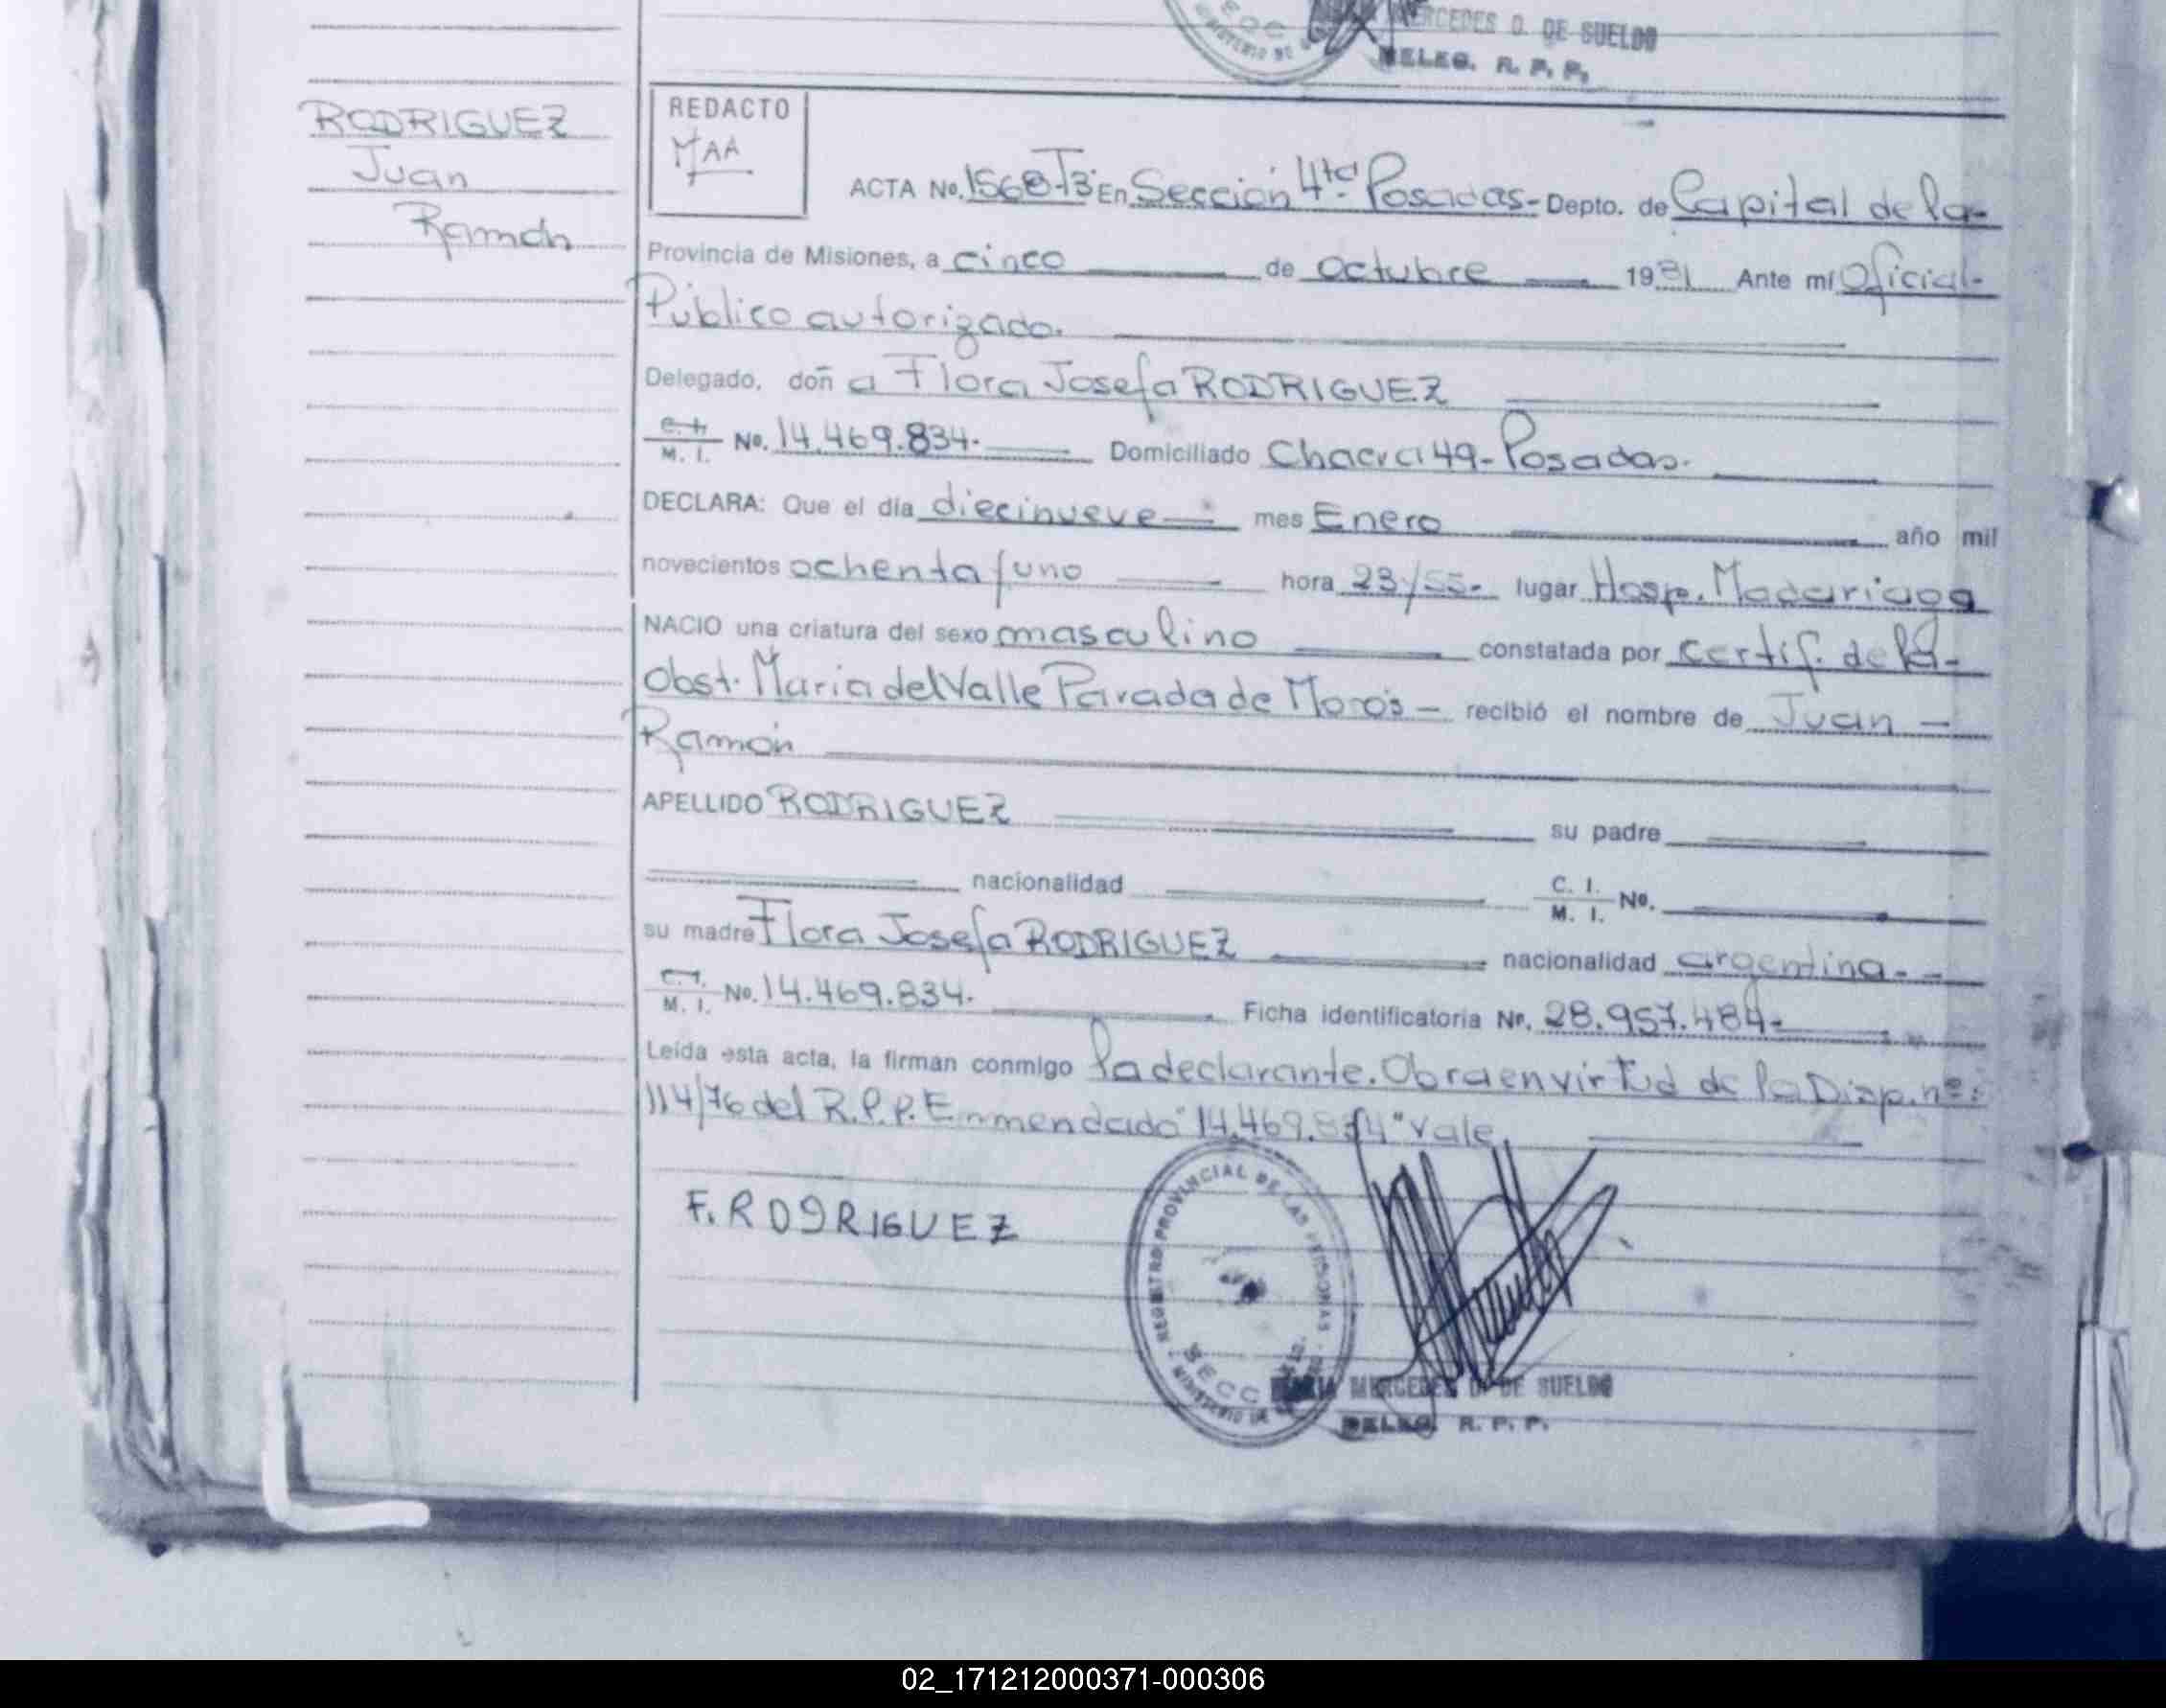 MERCEDES D. DE SUELDO
DELEG. R. P. P.
RODRIGUEZ
Juan
Ramón
REDACTO
MAA
ACTA No. 1568-T3º En Sección 4ta Posadas- Depto. de Capital de la-
Provincia de Misiones, a cinco de octubre 1981 Ante mí Oficial-
Público autorizado.
Delegado, doñ a Flora Josefa RODRIGUEZ
C. I. M. I. No. 14.469.834.- Domiciliado Chacra 49- Posadas.
DECLARA: Que el día diecinueve mes Enero año mil
novecientos ochenta y uno hora 23/55- lugar Hosp. Madariaga
NACIO una criatura del sexo masculino constatada por certif. de la-
Obst. Maria del Valle Parada de Moros - recibió el nombre de Juan -
Ramón
APELLIDO RODRIGUEZ su padre
nacionalidad C. I. M. I. No.
su madre Flora Josefa RODRIGUEZ nacionalidad argentina.-
C. I. M. I. No. 14.469.834. Ficha identificatoria Nº. 28.957.484-
Leída esta acta, la firman conmigo la declarante. Obra en virtud de la Disp. nº:
114/76 del R.P.P. Enmendado "14.469.834" Vale.
F. RODRIGUEZ
REGISTRO PROVINCIAL DE LAS PERSONAS
SECC
MINISTERIO DE
MARIA MERCEDES D. DE SUELDO
DELEG. R. P. P.
02_171212000371-000306